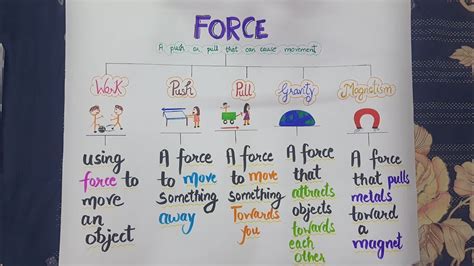 FORCE
A push or pull that can cause movement
Work
Push
Pull
Gravity
Magnetism
using
force to
move
an
object
A force
to move
something
away
A force
to move
something
Towards
you
A force
that
attracts
objects
towards
each
other
A force
that pulls
metals
toward
a magnet